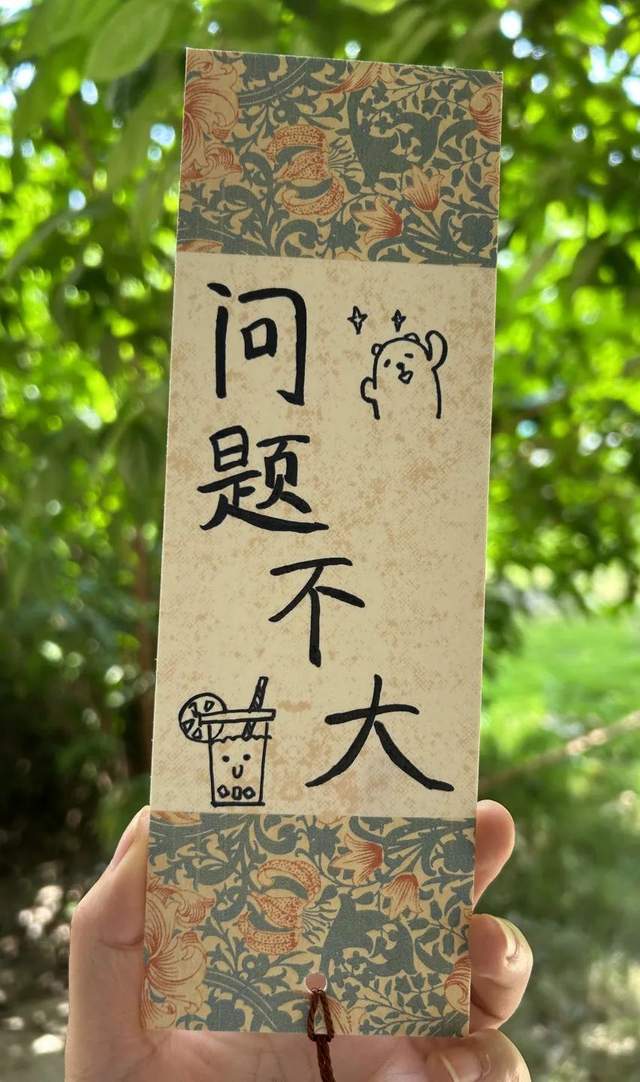 问题不大